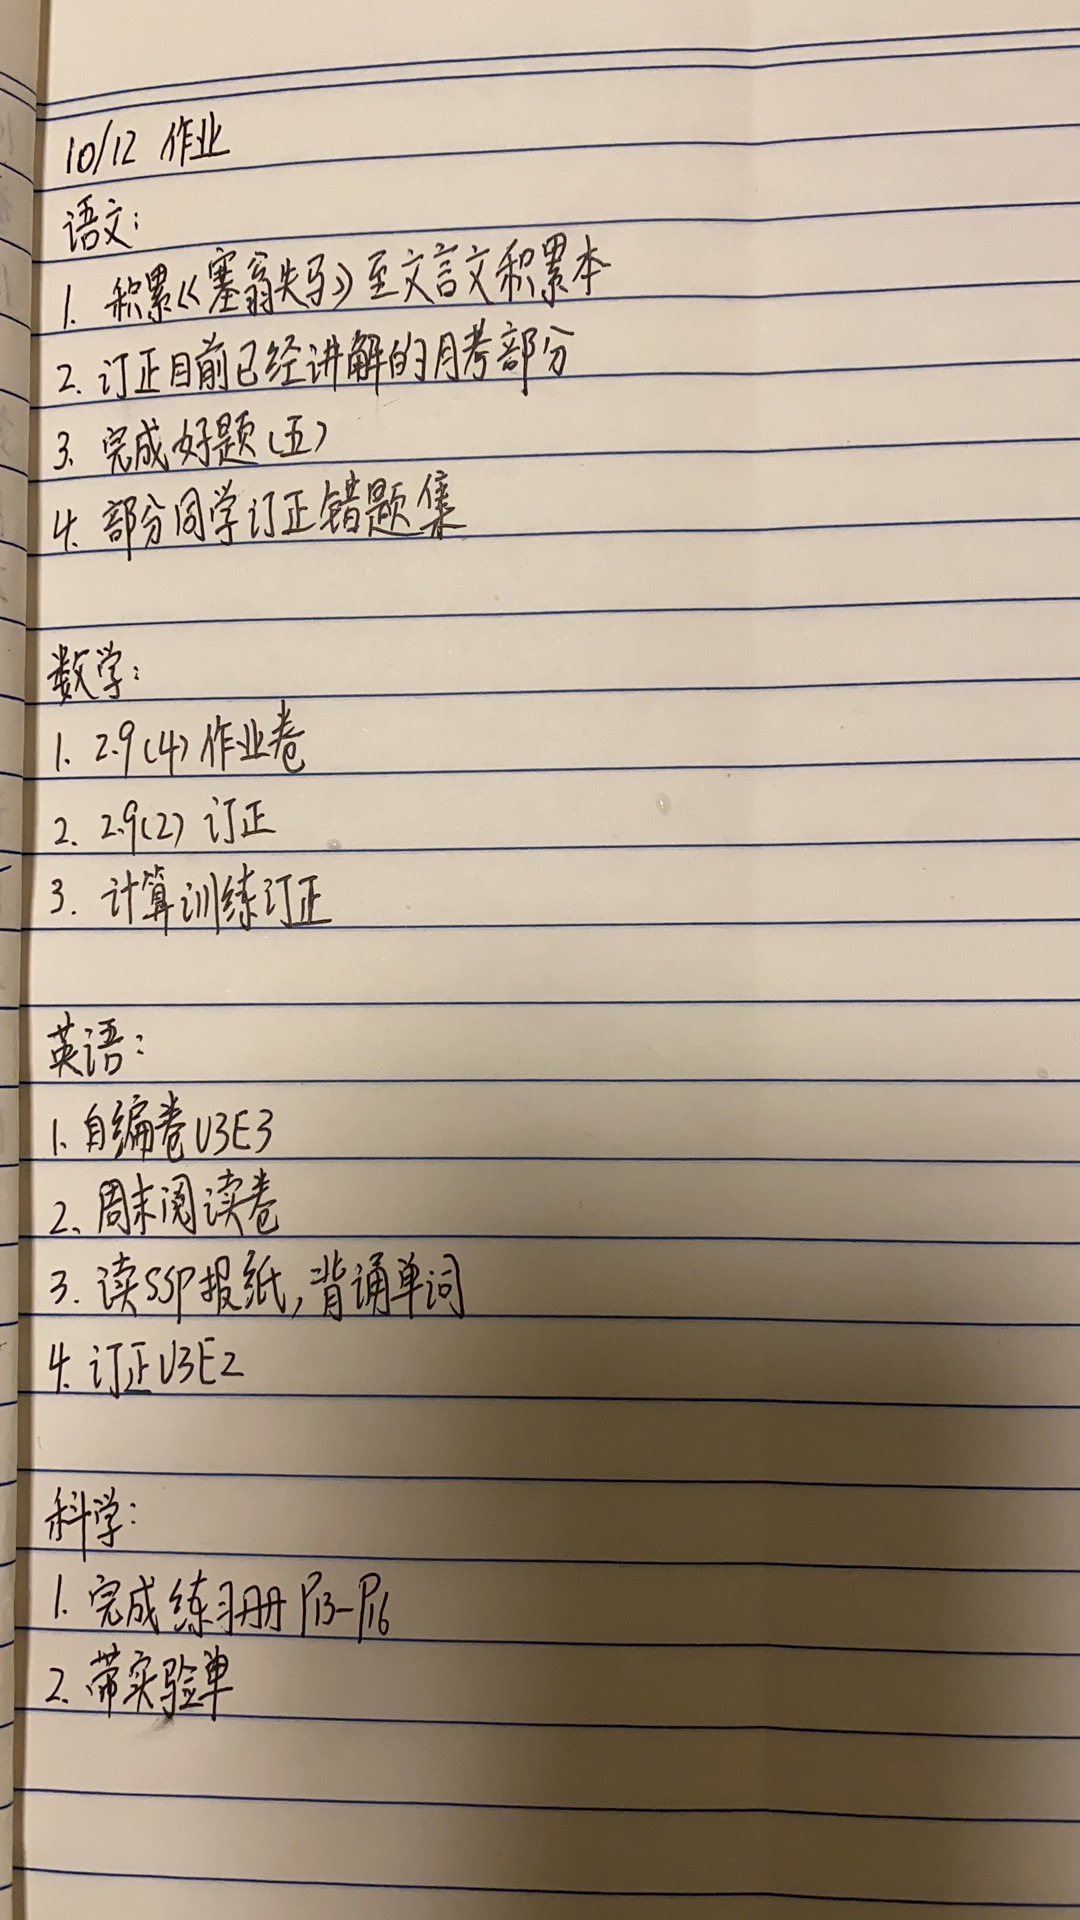 10/12 作业
语文:
1. 积累《塞翁失马》至文言文积累本
2. 订正目前已经讲解的月考部分
3. 完成好题(五)
4. 部分同学订正错题集
数学:
1. 2.9(4)作业卷
2. 2.9(2) 订正
3. 计算训练订正
英语:
1. 自编卷U3E3
2. 周末阅读卷
3. 读SSP报纸,背诵单词
4. 订正U3E2
科学:
1. 完成练习册P13-P16
2. 带实验单